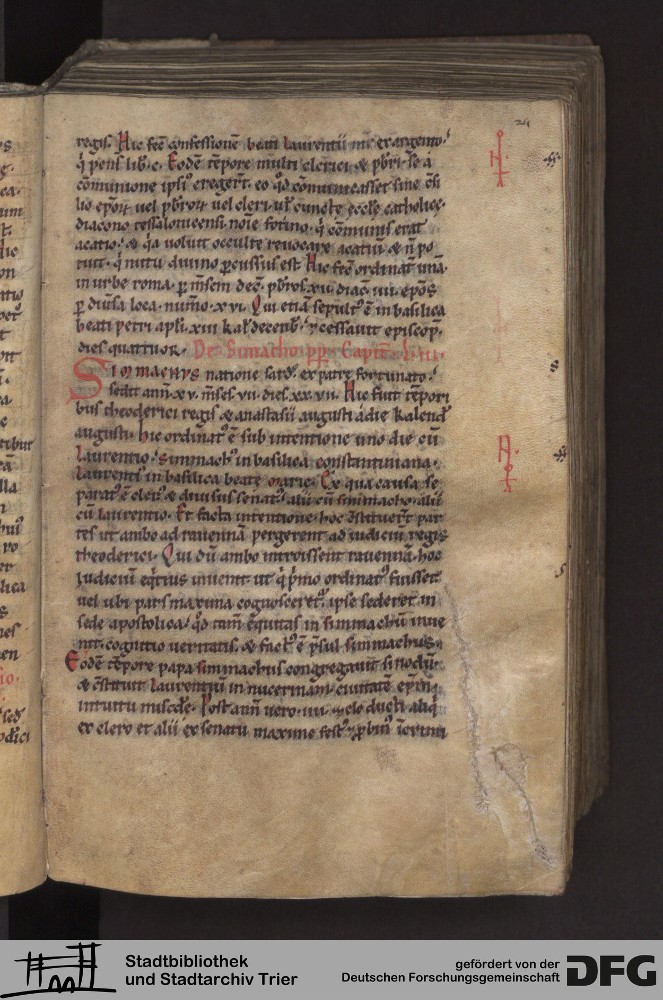 regis. Hic fec̄ confessionē beati laurentii mr̄ ex argento.
q̄ pens̄ lib̄. c. Eodē tēpore multi clerici & p̄bri. se a
cōmunione ipsī̄ eregert̄. eo qd̄ cōmunicasset sine cōsi
lio ep̄orū uel p̄brorū uel cleri. cuncte eccle catholice.
diacono tessalonicensi noīe fotino. q̄ cōmunis erat
acatio. & q̄a uoluit occulte reuocare acatiū & n̄ po
tuit. q̄ nutu diuino p̄cussus est. Hic fec̄ ordinat̄ unā.
in urbe roma. p̄ m̄sem dec̄. p̄bros. xii. diac̄. uii. ep̄os
p̄ diuersa loca. num̄o. xui. Qui etiā sepult̄ ē in basilica
beati petri apl̄i. xiii kal̄ decenb̄. & cessauit episcop̄.
dies quattuor. De Simacho pp̄. Capit̄. l. iii.
Simmachus natione sard̄. ex patre fortunato.
sedit ann̄. xv. m̄ses. uii. dies. xx. uii. Hic fuit tēpori
bus theoderici regis & anastasii augusti a die kalend̄
augusti. hic ordinat̄ ē sub intentione uno die cū
laurentio. simmach̄ in basilica constantiniana.
laurenti in basilica beate marie. Ex qua causa se
parat̄ ē cler̄ & diuisus senat̄. alii cū simmacho. alii
cū laurentio. Et facta intentione. hoc cōstituert̄ par
tes ut ambo ad rauennā pergerent ad iudiciū regis
theoderici. Qui dū ambo introissent rauennā. hoc
iudiciū eq̄tatis inuenit ut q̄ p̄mo ordinat̄ fuisset
uel ubi pars maxima cognosceret̄. ipse sederet in
sede apostolica. qd̄ tam̄ equitas in simmachū inue
nit. cognitio ueritatis. & fact̄ ē p̄sul simmachus.
Eodē tēpore papa simmachus congregauit sinodū.
& cōstituit laurentiū in nucerinam. ciuitatē ep̄m.
intuitu misc̄de. Post ann̄ uero. iiii. zelo ducti aliq̄
ex clero et alii ex senatu maxime fest̄ & p̄bin̄
24
Stadtbibliothek
und Stadtarchiv Trier
gefördert von der
Deutschen Forschungsgemeinschaft
DFG